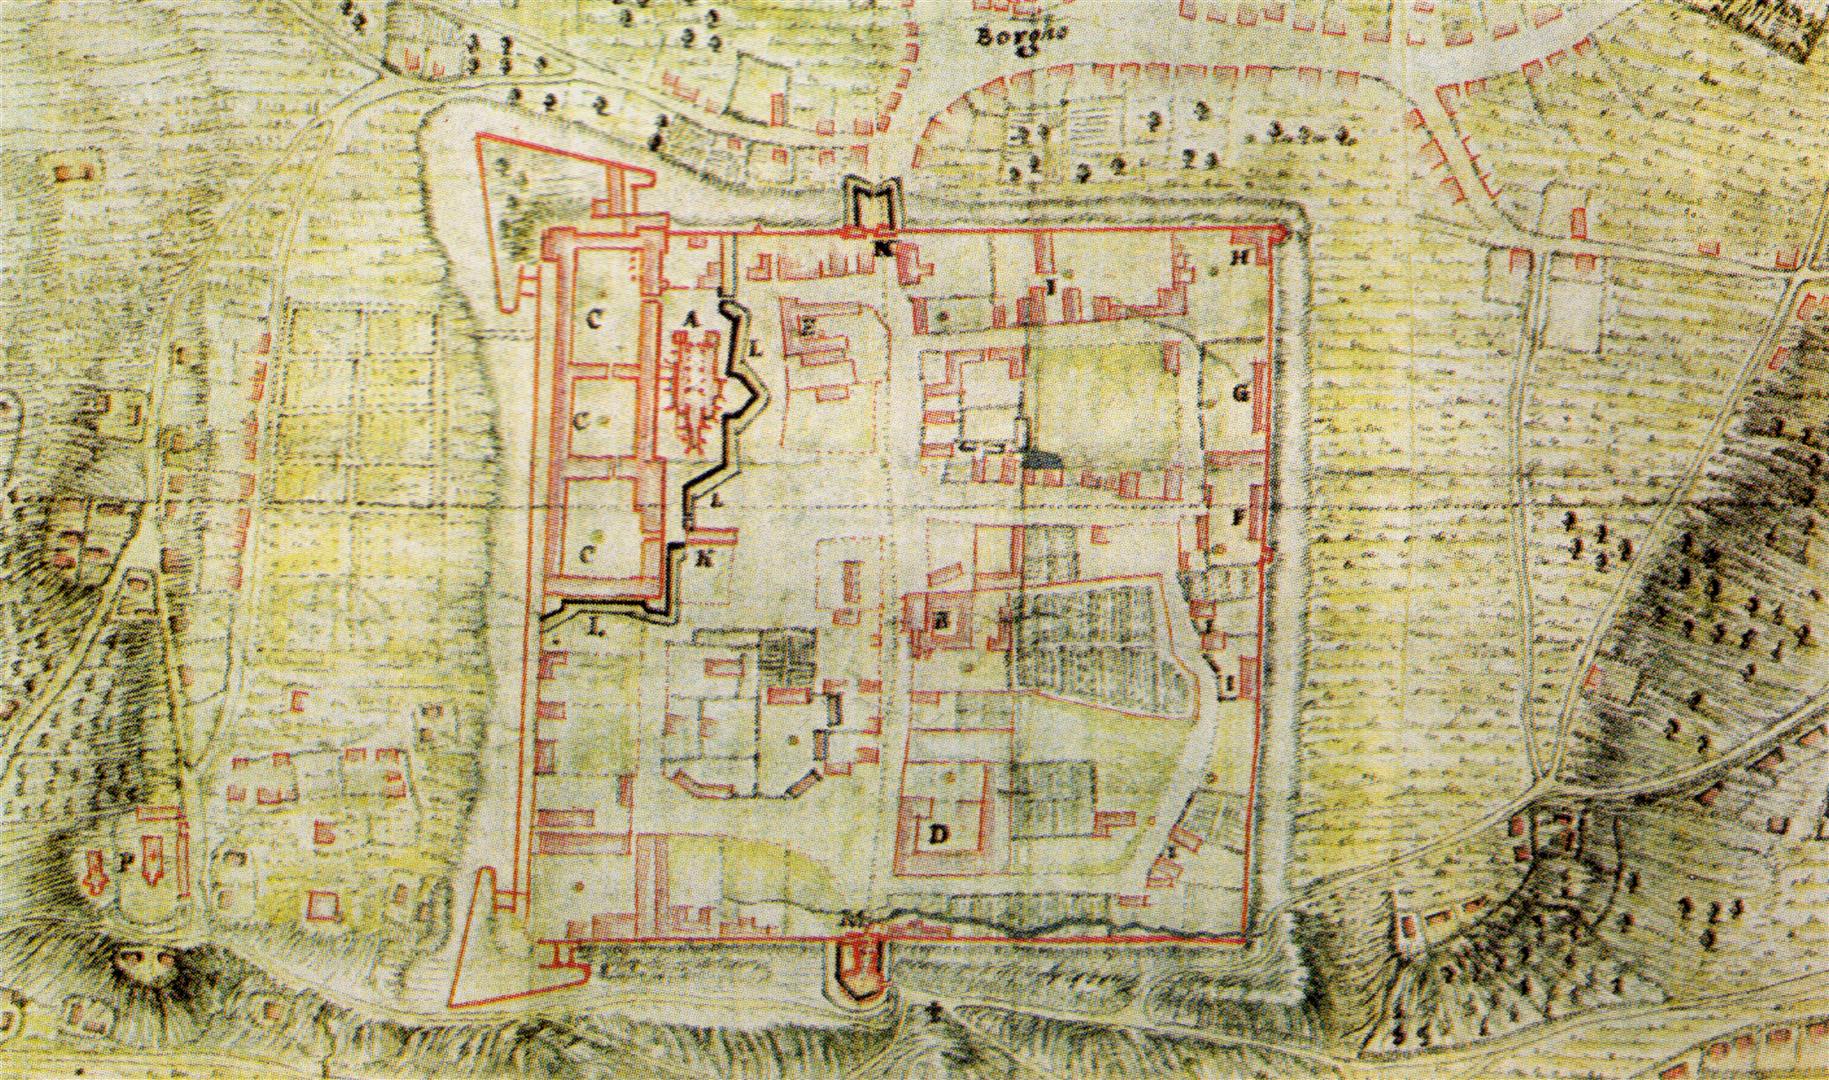 Borgho
N
H
I
C
A
E
L
G
C
L
F
C
K
L
B
I
I
D
P
M